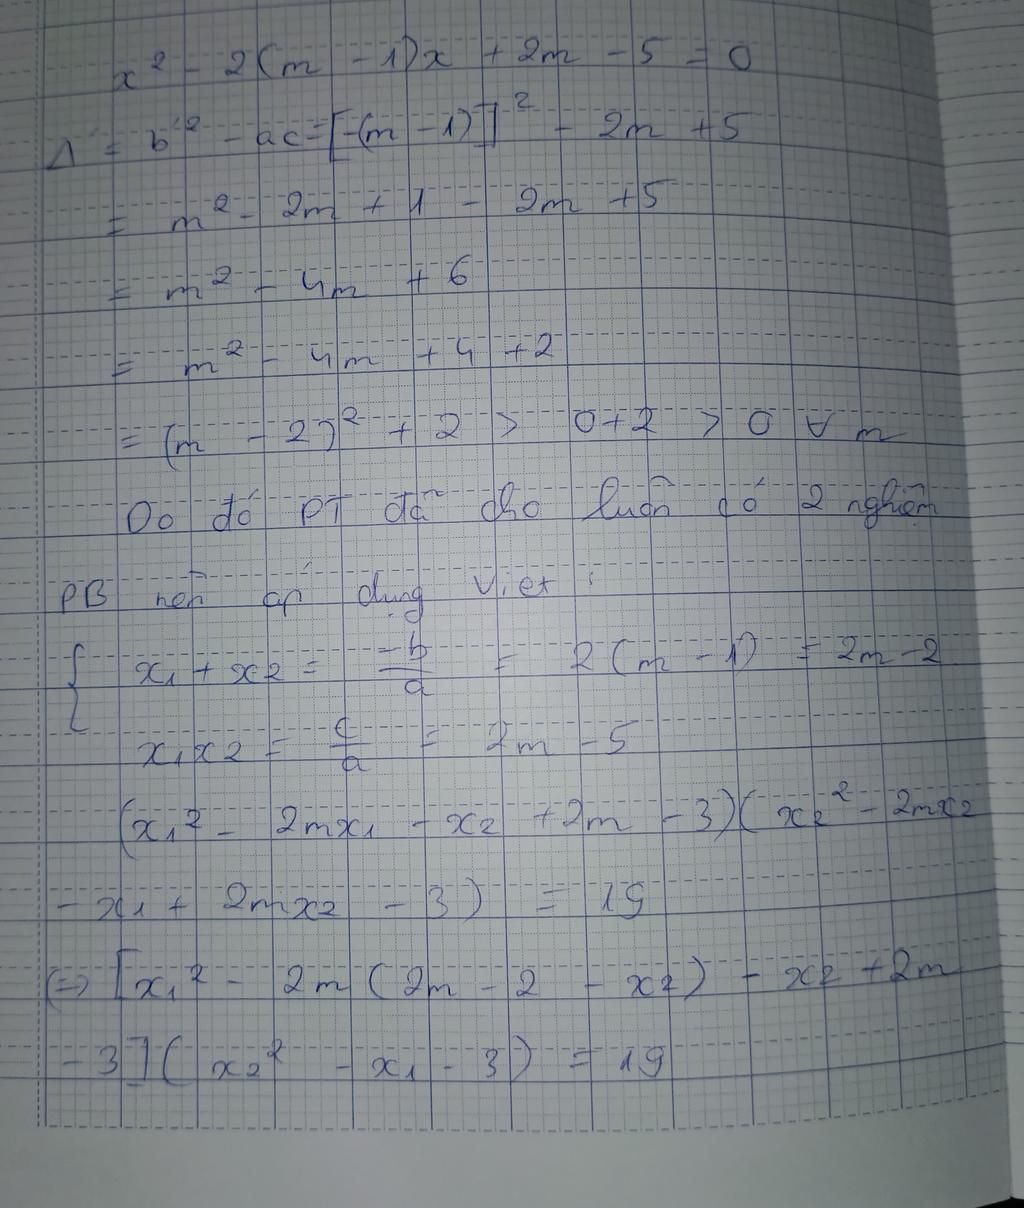 x² - 2(m - 1)x + 2m - 5 = 0
Δ' = b'² - ac = [-(m - 1)]² - 2m + 5
= m² - 2m + 1 - 2m + 5
= m² - 4m + 6
= m² - 4m + 4 + 2
= (m - 2)² + 2 > 0+2 > 0 ∀ m
Do đó PT đã cho luôn có 2 nghiệm
PB nên áp dụng Viet :
{ x₁ + x₂ = -b/a = 2(m - 1) = 2m - 2
x₁x₂ = c/a = 2m - 5
(x₁² - 2mx₁ - x₂ + 2m - 3)(x₂² - 2mx₂
- x₁ + 2mx₂ - 3) = 19
(=) [x₁² - 2m(2m - 2 - x₂) - x₂ + 2m
- 3](x₂² - x₁ - 3) = 19